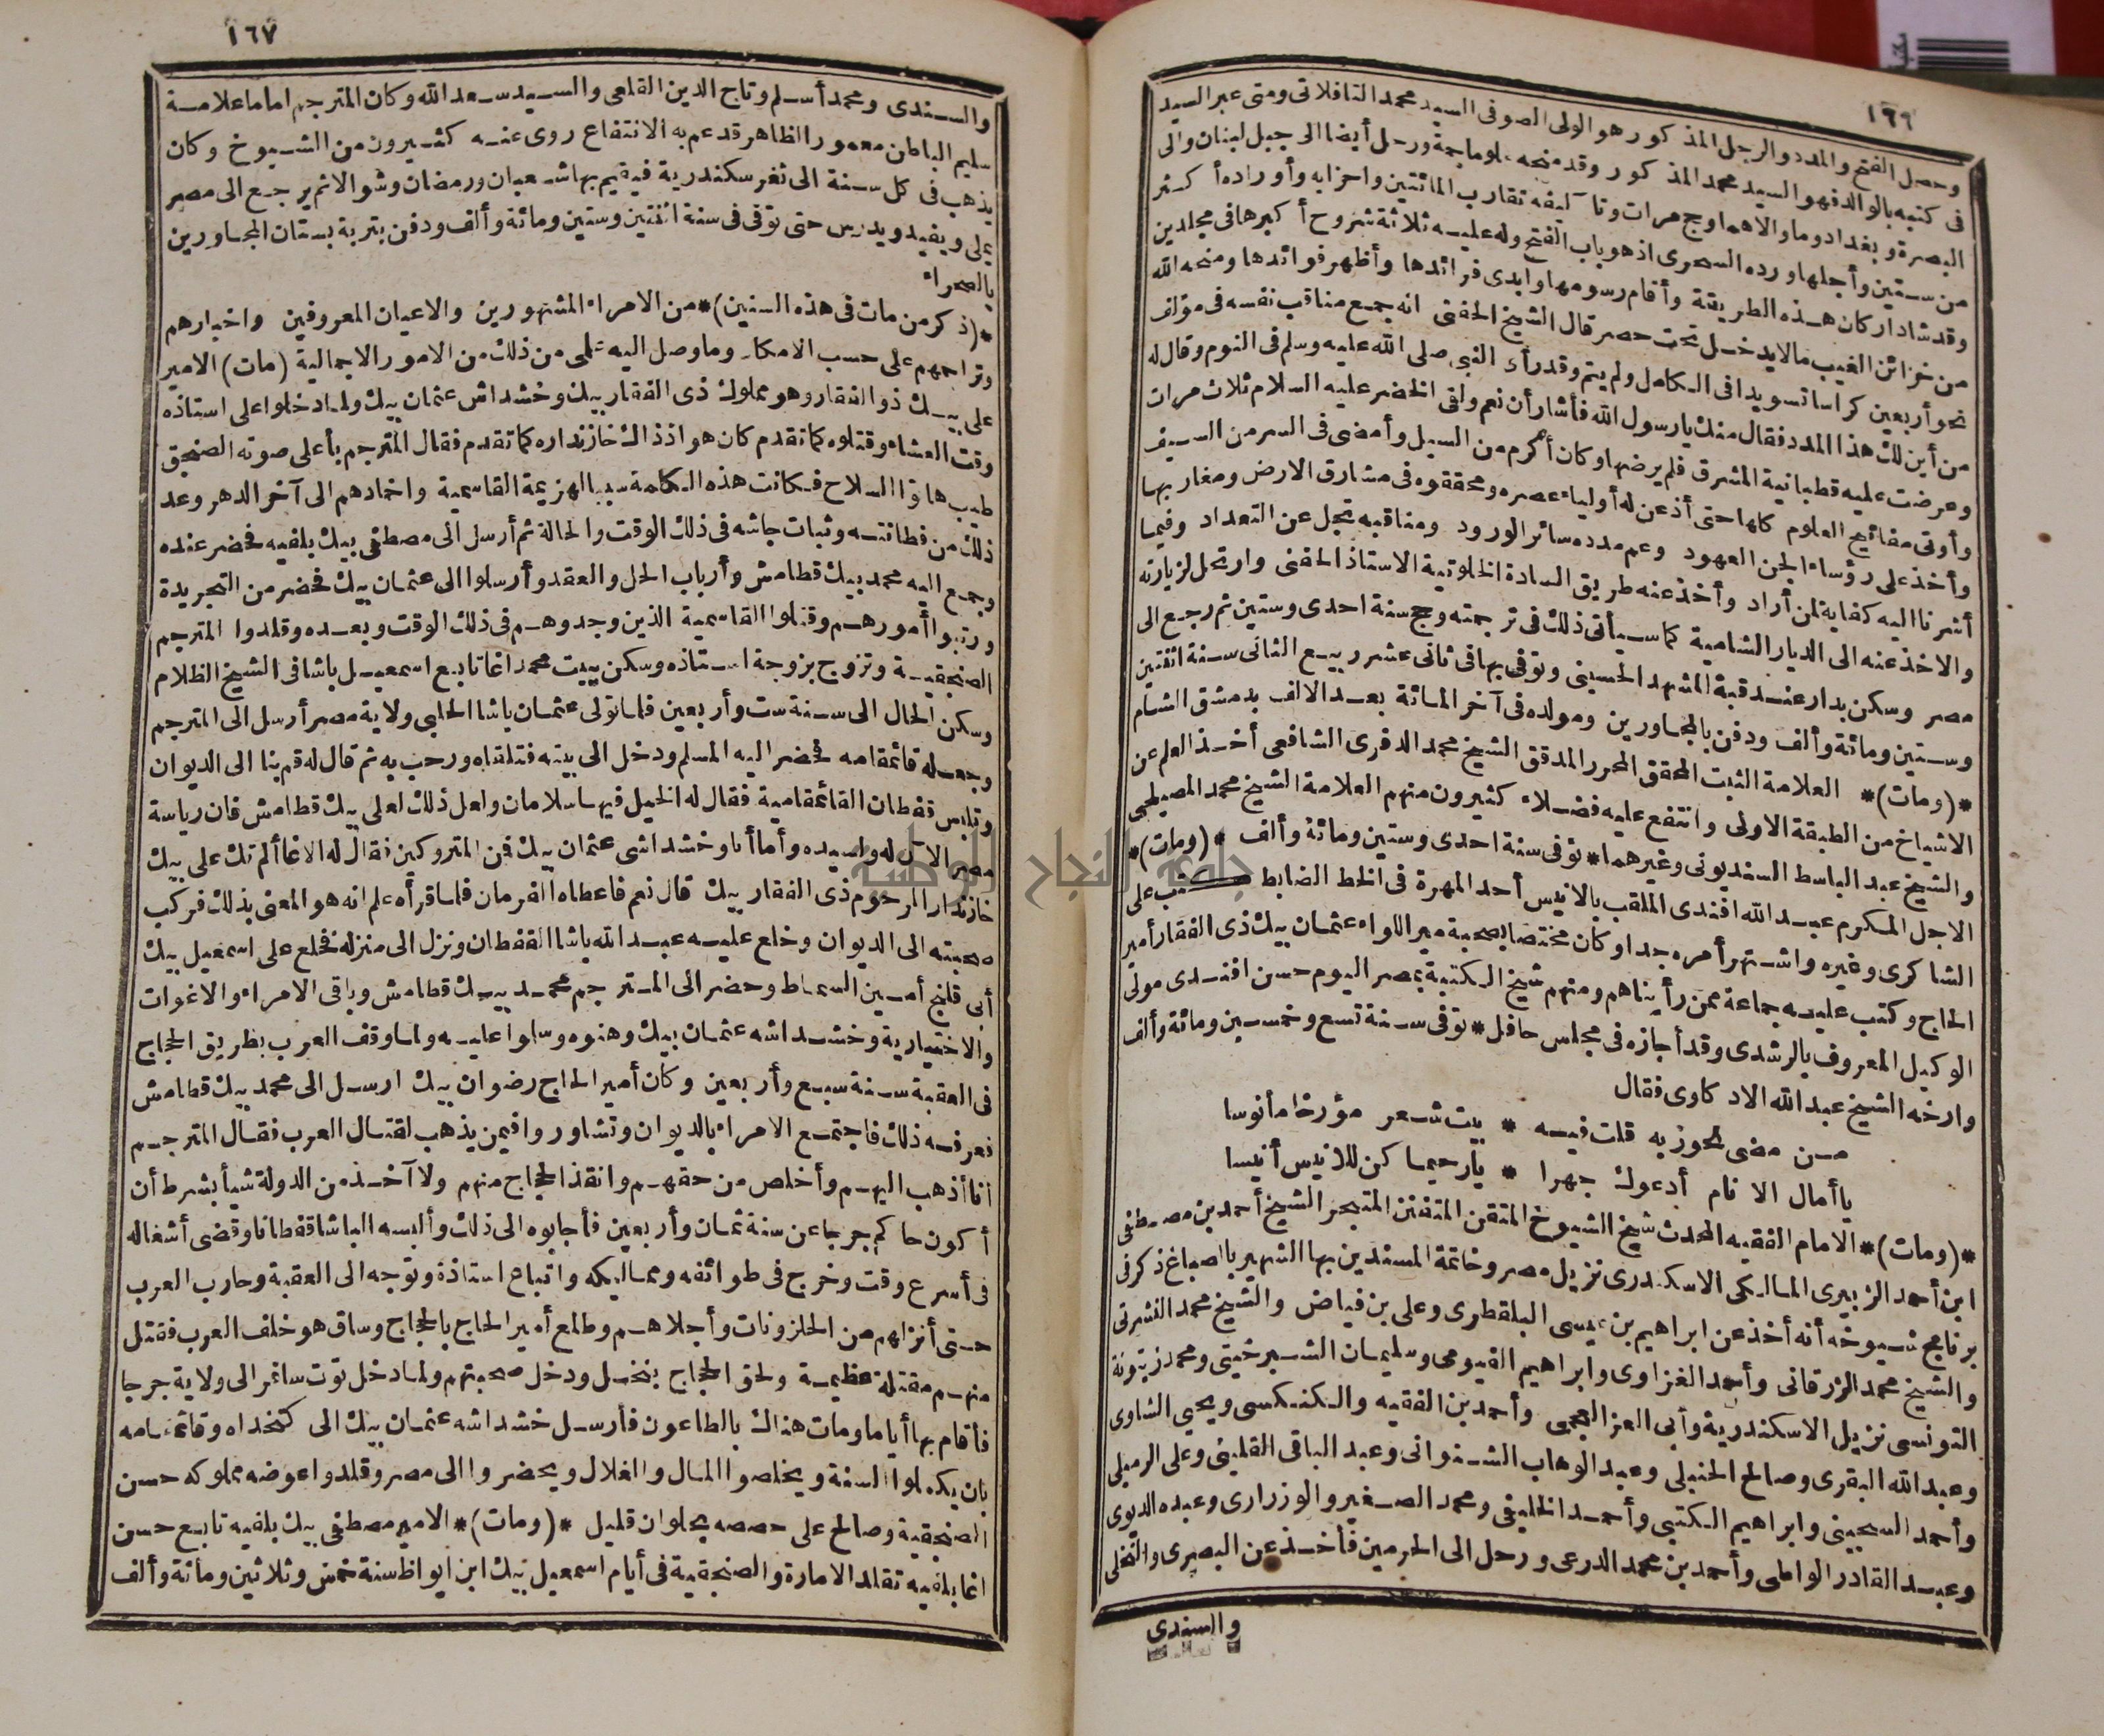 ١٦٦
وحصل الفتح والمدد والرجل المذكور هو الولى الصوفى السيد محمد التافلاتى ومتى عبر السيد
فى كتبه بالوالد فهو السيد محمد المذكور وقد منحه علوما جمة ورحل أيضا الى جبل لبنان والى
البصرة وبغداد وما والاهما وحج مرات وتآليفه تقارب المائتين واحزابه وأوراده أكثر
من ستين وأجلها ورده السحرى اذ هو باب الفتح وله عليه ثلاثة شروح أكبرها فى مجلدين
وقد شاد اركان هذه الطريقة وأقام رسومها وابدى فرائدها وأظهر فوائدها ومنحه الله
من خزائن الغيب مالا يدخل تحت حصر قال الشيخ الحفنى انه جمع مناقب نفسه فى مؤلف
نحو أربعين كراسا تسويدا فى الكامل ولم يتم وقد رأى النبى صلى الله عليه وسلم فى النوم وقال له
من أين لك هذا المدد فقال منك يارسول الله فأشار أن نعم ولقى الخضر عليه السلام ثلاث مرات
وعرضت عليه قطبانية المشرق فلم يرضها وكان أكرم من السيل وأمضى فى السر من السيف
وأوتى مفاتيح العلوم كلها حتى أذعن له أولياء عصره ومحققوه فى مشارق الارض ومغاربها
وأخذ على رؤساء الجن العهود وعم مدده سائر الورود ومناقبه تجل عن التعداد وفيما
أشرنا اليه كفاية لمن أراد وأخذ عنه طريق السادة الخلوتية الاستاذ الحفنى وارتحل لزيارته
والاخذ عنه الى الديار الشامية كما سيأتى ذلك فى ترجمته وحج سنة احدى وستين ثم رجع الى
مصر وسكن بدار عند قبة المشهد الحسينى وتوفى بها فى ثانى عشر ربيع الثانى سنة اثنتين
وستين ومائة وألف ودفن بالمجاورين ومولده فى آخر المائة بعد الالف بدمشق الشام
*(ومات)* العلامة الثبت المحقق المحرر المدقق الشيخ محمد الدفرى الشافعى أخذ العلم عن
الاشياخ من الطبقة الاولى وانتفع عليه فضلاء كثيرون منهم العلامة الشيخ محمد المصيلحى
والشيخ عبد الباسط السنديونى وغيرهما * توفى سنة احدى وستين ومائة وألف *(ومات)*
الاجل المكرم عبد الله افندى الملقب بالانيس أحد المهرة فى الخط الضابط كتب على
الشاكرى وغيره واشتهر أمره جدا وكان مختصا بصحبة مير اللواء عثمان بيك ذى الفقار أمير
الحاج وكتب عليه جماعة ممن رأيناهم ومنهم شيخ الكتبة بمصر اليوم حسن افندى مولى
الوكيل المعروف بالرشدى وقد أجازه فى مجلس حافل * توفى سنة تسع وخمسين ومائة وألف
وارخه الشيخ عبد الله الادكاوى فقال
مـن مضى نحوزيه قلت فيـه * بيت شـعر مؤرخا مأنوسا
يا أمال الانام أدعوك جهرا * يارحيما كن للانيس أنيسا
*(ومات)* الامام الفقيه المحدث شيخ الشيوخ المتقن المتفنن المتبحر الشيخ أحمد بن مصطفى
ابن أحمد الزبيرى المالكى الاسكندرى نزيل مصر وخاتمة المسندين بها الشهير بالصباغ ذكر فى
برنامج شيوخه أنه أخذ عن ابراهيم بن عيسى البلقطرى وعلى بن فياض والشيخ محمد النشرتى
والشيخ محمد الزرقانى وأحمد الغزاوى وابراهيم الفيومى وسليمان الشبرخيتى ومحمد زيتونة
التونسى نزيل الاسكندرية وأبى العز العجمى وأحمد بن الفقيه والكنكسى ويحيى الشاوى
وعبد الله البقرى وصالح الحنبلى وعبد الوهاب الشنوانى وعبد الباقى القلينى وعلى الرميلى
وأحمد السجينى وابراهيم الكتبى وأحمد الخليفى ومحمد الصغير والوزرارى وعبده الديوى
وعبد القادر الواطى وأحمد بن محمد الدرعى ورحل الى الحرمين فأخذ عن البصرى والنخلى
والسندى
١٦٧
والسندى ومحمد أسلم وتاج الدين القلعى والسيد سعد الله وكان المترجم اماما علامة
سليم الباطن معمور الظاهر قد عم به الانتفاع روى عنه كثيرون من الشيوخ وكان
يذهب فى كل سنة الى ثغر سكندرية فيقيم بها شعبان ورمضان وشوالا ثم يرجع الى مصر
يملى ويفيد ويدرس حتى توفى فى سنة اثنتين وستين ومائة وألف ودفن بتربة بستان المجاورين
بالصحراء
*(ذكر من مات فى هذه السنين)* من الامراء المشهورين والاعيان المعروفين واخبارهم
وتراجمهم على حسب الامكان وما وصل اليه علمى من ذلك من الامور الاجمالية (مات) الامير
على بيك ذو الفقار وهو مملوك ذى الفقار بيك وخشداش عثمان بيك ولما دخلوا على استاذه
وقت العشاء وقتلوه كما تقدم كان هو اذ ذاك خازنداره كما تقدم فقال المترجم بأعلى صوته الصنجق
طيب هاتوا السلاح فكانت هذه الكلمة سببا لهزيمة القاسمية واخمادهم الى آخر الدهر وعد
ذلك من فطانته وثبات جاشه فى ذلك الوقت والحالة ثم أرسل الى مصطفى بيك بلفيه فحضر عنده
وجمع اليه محمد بيك قطامش وأرباب الحل والعقد وأرسلوا الى عثمان بيك فحضر من التجريدة
ورتبوا أمورهم وقتلوا القاسمية الذين وجدوهم فى ذلك الوقت وبعده وقلدوا المترجم
الصنجقية وتزوج بزوجة استاذه وسكن ببيت محمد اغا تابع اسمعيل باشا فى الشيخ الظلام
وسكن الحال الى سنة ست وأربعين فلما تولى عثمان باشا الحلبى ولاية مصر أرسل الى المترجم
وجعله قائمقامه فحضر اليه المسلم ودخل الى بيته فتلقاه ورحب به ثم قال له قم بنا الى الديوان
وتلبس قفطان القائمقامية فقال له الخيل فيها سلامان ولعل ذلك لعلى بيك قطامش فان رياسة
مصر الآن له ولسيده وأما أنا وخشداشى عثمان بيك فمن المتروكين فقال له الاغا ألم تك على بيك
خازندار المرحوم ذى الفقار بيك قال نعم فاعطاه الفرمان فلما قرأه علم انه هو المعنى بذلك فركب
صحبته الى الديوان وخلع عليه عبد الله باشا القفطان ونزل الى منزله فخلع على اسمعيل بيك
أبى قلنج أمين السماط وحضر الى المترجم محمد بيك قطامش وباقى الامراء والاغوات
والاختيارية وخشداشه عثمان بيك وهنوه وسلوا عليه ولما وقف العرب بطريق الحجاج
فى العقبة سنة سبع وأربعين وكان أمير الحاج رضوان بيك ارسل الى محمد بيك قطامش
فعرفه ذلك فاجتمع الامراء بالديوان وتشاوروا فيمن يذهب لقتال العرب فقال المترجم
أنا أذهب اليهم وأخلص من حقهم وانقذ الحجاج منهم ولا آخذ من الدولة شيأ بشرط أن
أكون حاكم جرجا عن سنة ثمان وأربعين فأجابوه الى ذلك وألبسه الباشا قفطانا وقضى أشغاله
فى أسرع وقت وخرج فى طوائفه ومماليكه واتباع استاذه وتوجه الى العقبة وحارب العرب
حتى أنزلهم من الحلزونات وأجلاهم وطلع أمير الحاج بالحجاج وساق هو خلف العرب فقتل
منهم مقتلة عظيمة ولحق الحجاج بنخل ودخل صحبتهم ولما دخل توت سافر الى ولاية جرجا
فأقام بها أياما ومات هناك بالطاعون فأرسل خشداشه عثمان بيك الى كتخداه وقائمقامه
بان يكملوا السنة ويخلصوا المال والغلال ويحضروا الى مصر وقلدوا عوضه مملوكه حسن
الصنجقية وصالح على حصصه بحلوان قليل *(ومات)* الامير مصطفى بيك بلفيه تابع حسن
اغا بلفيه تقلد الامارة والصنجقية فى أيام اسمعيل بيك ابن ايواظ سنة خمس وثلاثين ومائة وألف
جامعة النجاح الوطنية